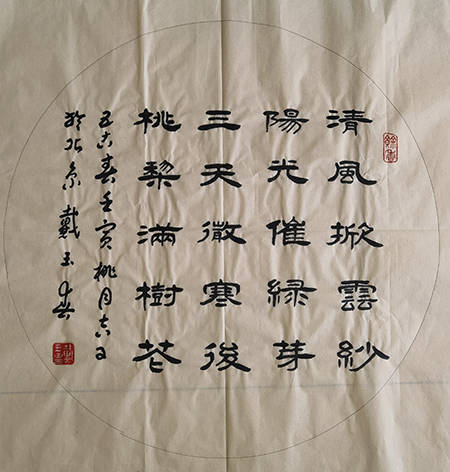 清風掀雲紗
陽光催緑芽
三天微寒後
桃梨滿樹花
五古春壬寅桃月吉日
於北京戴玉